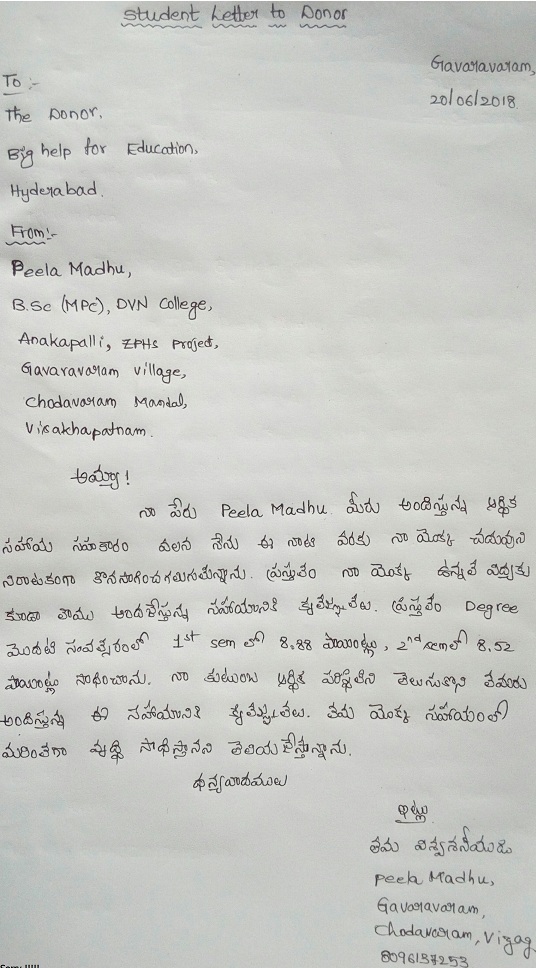 Student Letter to Donor
Gavaravaram,
20/06/2018
To :-
The Donor.
Big help for Education,
Hyderabad.
From:-
Peela Madhu,
B.Sc (MPC), DVN College,
Anakapalli, ZPHS Project,
Gavaravaram Village,
Chodavaram Mandal,
Visakhapatnam.
అయ్యా!
నా పేరు Peela Madhu. మీరు అందిస్తున్న ఆర్థిక
సహాయ సహకారం వలన నేను ఈ నాటి వరకు నా యొక్క చదువుని
నిరాటంకంగా కొనసాగించగలుగుతున్నాను. ప్రస్తుతం నా యొక్క ఉన్నత విద్యకు
కూడా తాము అందజేస్తున్న సహాయానికి కృతజ్ఞతలు. ప్రస్తుతం Degree
మొదటి సంవత్సరంలో 1st sem లో 8.88 పాయింట్లు, 2nd semలో 8.52
పాయింట్లు సాధించాను. నా కుటుంబ ఆర్థిక పరిస్థితిని తెలుసుకొని తమరు
అందిస్తున్న ఈ సహాయానికి కృతజ్ఞతలు. తమ యొక్క సహాయంతో
మరింతగా వృద్ధి సాధిస్తానని తెలియజేస్తున్నాను.
ధన్యవాదములు
ఇట్లు
తమ విశ్వసనీయుడు
Peela Madhu,
Gavaravaram,
Chodavaram, Vizag
8096137253